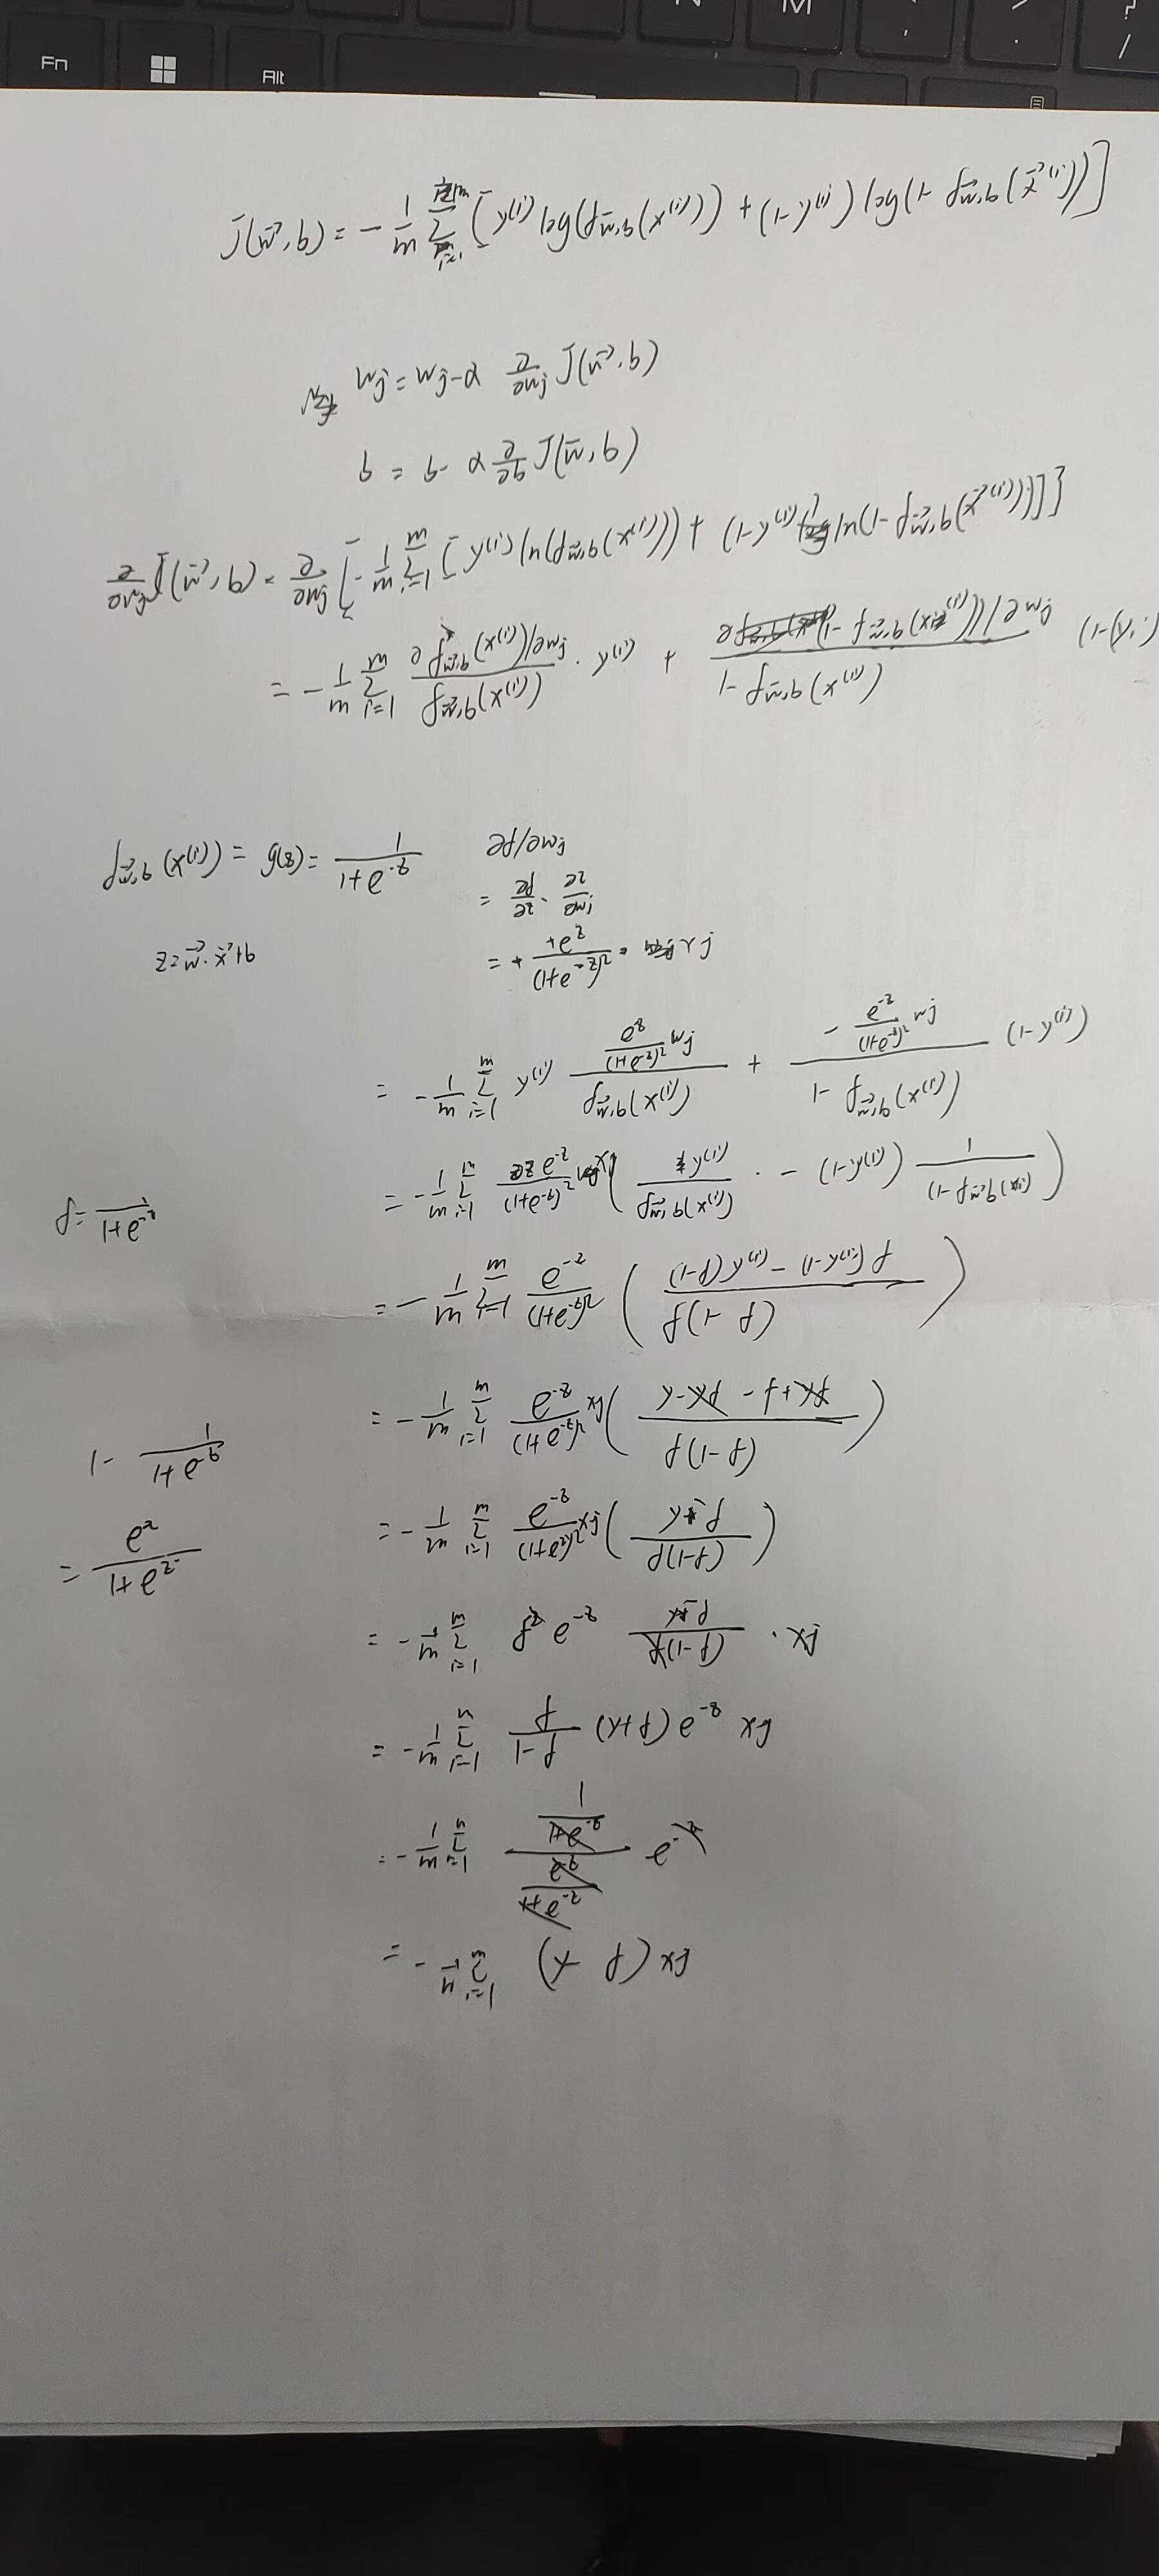 N M , . ? /
Fn Alt
J(w⃗,b) = - 1/m Σ i=1 [ y⁽ⁱ⁾ log(f w⃗,b(x⁽ⁱ⁾)) + (1-y⁽ⁱ⁾) log(1- f w⃗,b(x⃗⁽ⁱ⁾)) ]
wj = wj - α ∂/∂wj J(w⃗,b)
b = b - α ∂/∂b J(w⃗,b)
∂/∂wj J(w⃗,b) = ∂/∂wj { - 1/m Σ i=1 m [ y⁽ⁱ⁾ ln(f w⃗,b(x⁽ⁱ⁾)) + (1-y⁽ⁱ⁾) ln(1-f w⃗,b(x⃗⁽ⁱ⁾)) ] }
= - 1/m Σ i=1 m ∂f w⃗,b(x⁽ⁱ⁾)/∂wj / f w⃗,b(x⁽ⁱ⁾) · y⁽ⁱ⁾ + ∂(1- f w⃗,b(x⁽ⁱ⁾))/∂wj / 1- f w⃗,b(x⁽ⁱ⁾) (1-(y,i)
f w⃗,b(x⁽ⁱ⁾) = g(z) = 1/(1+e^-z) ∂f/∂wj
= ∂f/∂z · ∂z/∂wj
z = w⃗·x⃗+b = + +e^z/(1+e^-z)² · xj
= - 1/m Σ i=1 m y⁽ⁱ⁾ e^z/(1+e^-z)² wj / f w⃗,b(x⁽ⁱ⁾) + - e^-z/(1+e^-z)² wj / 1- f w⃗,b(x⁽ⁱ⁾) (1-y⁽ⁱ⁾)
= - 1/m Σ i=1 m e^-z/(1+e^-z)² xj ( y⁽ⁱ⁾/f w⃗,b(x⁽ⁱ⁾) · - (1-y⁽ⁱ⁾) 1/(1-f w⃗,b(xi)) )
f = 1/(1+e^-z)
= - 1/m Σ i=1 m e^-z/(1+e^-z)² ( (1-f)y⁽ⁱ⁾ - (1-y⁽ⁱ⁾)f / f(1-f) )
= - 1/m Σ i=1 m e^-z/(1+e^-z)² xj ( y-yf - f+yf / f(1-f) )
1- 1/(1+e^-z)
= - 1/m Σ i=1 m e^-z/(1+e^z)² xj ( y-f / f(1-f) )
= e^z/(1+e^z-)
= - 1/m Σ i=1 m f² e^-z y-f / f(1-f) · xj
= - 1/m Σ i=1 n f/(1-f) (y+f) e^-z xj
= - 1/m Σ i=1 n 1/(1+e^-z) / e^-z/(1+e^-z) e^-z
= - 1/m Σ i=1 m (y-f) xj